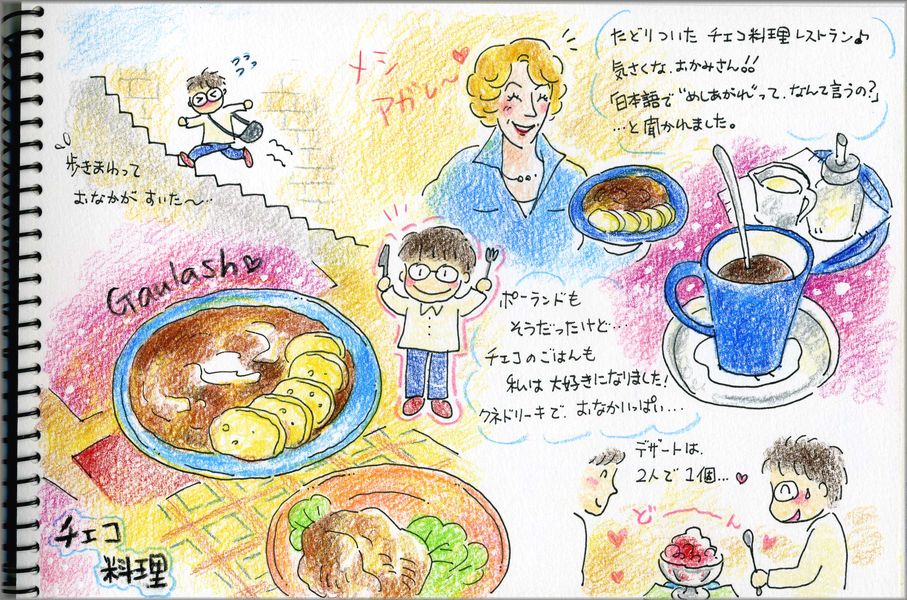 歩きまわって
おなかが すいた〜…
メシ
アガレ〜
たどりついた チェコ料理レストラン♪
気さくな、おかみさん!!
「日本語で“めしあがれ”って、なんて言うの?」
…と聞かれました。
Gaulash
ポーランドも
そうだったけど…
チェコのごはんも
私は大好きになりました!
クネドリーキで、おなかいっぱい…
デザートは、
2人で1個…
どーん
チェコ
料理